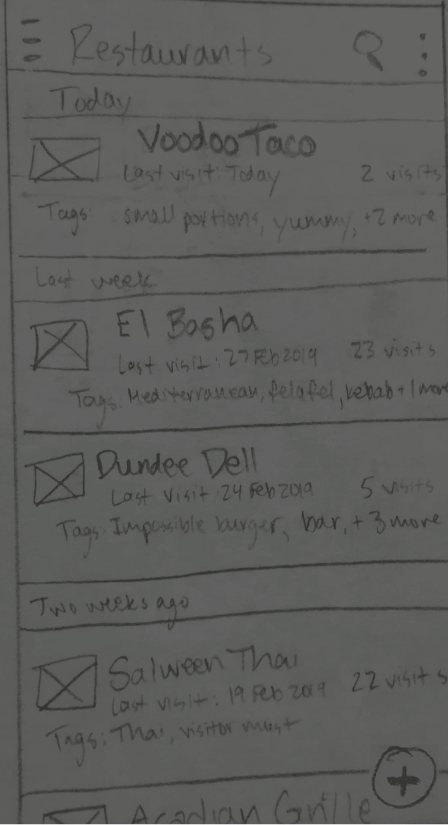 Restaurants
Today
Voodoo Taco
Last visit: Today 2 visits
Tags: small portions, yummy, +2 more
Last week
El Basha
Last visit: 27 Feb 2019 23 visits
Tags: Mediterranean, felafel, kebab +1 more
Dundee Dell
Last visit: 24 Feb 2019 5 visits
Tags: Impossible burger, bar, +3 more
Two weeks ago
Salween Thai
Last visit: 19 Feb 2019 22 visits
Tags: Thai, visitor must
+
Acadian Grille